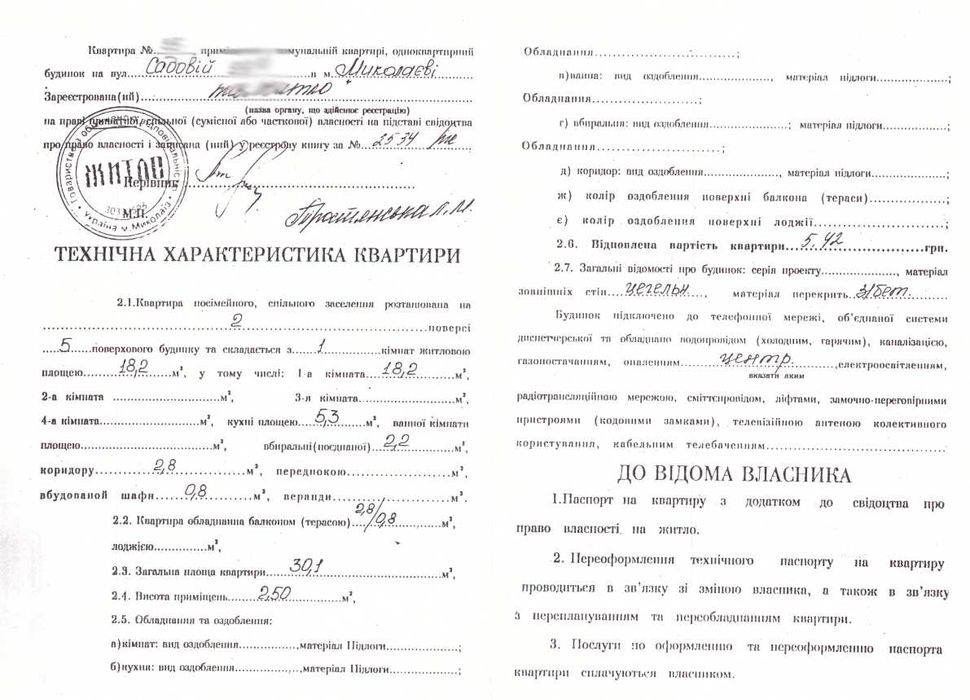 Квартира №... приміщ... комунальній квартирі, одноквартирний
будинок на вул. Садовій в м. Миколаєві
Зареєстрована(ний)
(назва органу, що здійснює реєстрацію)
на праві приватної, спільної (сумісної або часткової) власності на підставі свідоцтва
про право власності і записана (ний) у реєстрову книгу за № 2534
Товариство з обмеженою відповідальністю
ЖИТЛО
Україна м. Миколаїв
Керівник
М.П.
ТЕХНІЧНА ХАРАКТЕРИСТИКА КВАРТИРИ
2.1.Квартира посімейного, спільного заселення розташована на
2 поверсі
5 поверхового будинку та складається з 1 кімнат житловою
площею 18,2 м², у тому числі: 1-а кімната 18,2 м²,
2-а кімната м², 3-я кімната м²,
4-а кімната м², кухні площею 5,3 м², ванної кімнати
площею м², вбиральні(поєднаної) 2,2 м²,
коридору 2,8 м², передпокою м²,
вбудованої шафи 0,8 м², веранди м².
2.2. Квартира обладнанна балконом (терасою) 2,8/0,8 м²,
лоджією м²,
2.3. Загальна площа квартири 30,1 м²,
2.4. Висота приміщень 2,50 м²,
2.5. Обладнання та оздоблення:
а)кімнат: вид оздоблення ,матеріал Підлоги ;
б)кухня: вид оздоблення ,матеріал Підлоги ;
Обладнання ;
в)ванна: вид оздоблення , матеріал підлоги ;
Обладнання ;
г) вбиральня: вид оздоблення ; матеріал підлоги ;
Обладнання ;
д) коридор: вид оздоблення , матеріал підлоги ;
ж) колір оздоблення поверхні балкона (тераси) ;
є) колір оздоблення поверхні лоджії ;
2.6. Відновлена вартість квартири 5,42 грн.
2.7. Загальні відомості про будинок: серія проекту , матеріал
зовнішніх стін цегельн. , матеріал перекрить з/бет.
Будинок підключено до телефонної мережі, об'єднаної системи
диспетчерської та обладнано водопроводом (холодним, гарячим), каналізацією,
газопостачанням, опаленням центр. ,електроосвітленням,
вказати яким
радіотрансляційною мережою, сміттєпроводом, ліфтами, замочно-переговірними
пристроями (кодовими замками), телевізійною антеною колективного
користування, кабельним телебаченням
ДО ВІДОМА ВЛАСНИКА
1.Паспорт на квартиру з додатком до свідоцтва про
право власності на житло.
2. Переоформлення технічного паспорту на квартиру
проводиться в зв'язку зі зміною власника, а також в зв'язку
з переплануванням та переобладнанням квартири.
3. Послуги по оформленню та переоформленню паспорта
квартири сплачуються власником.